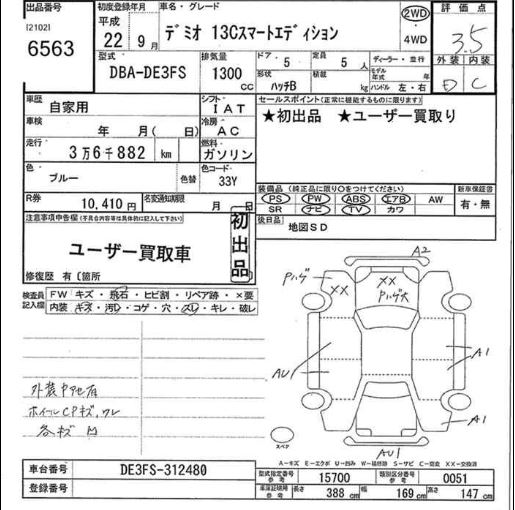 出品番号
[2102]
6563
初度登録年月
平成
22年 9月
車名・グレード
デミオ 13Cスマートエディション
2WD
・
4WD
評価点
3.5
外装 内装
D C
型式
DBA-DE3FS
排気量
1300
CC
ドア・
5
形状
ハッチB
定員
5 人
積載
kg
ディーラー・並行
モデル年式 年
ハンドル 左・右
車歴
自家用
シフト
IAT
車検
年 月( 日)
冷房
AC
走行
3万6千882 km
燃料
ガソリン
色
ブルー
色替
色コード
33Y
R券
10,410 円
名変通知期限
月 日
セールスポイント(正常に機能するものに限ります)
★初出品 ★ユーザー買取り
装備品(純正品に限り○をつけてください)
PS ・ PW ・ ABS ・ エアB ・ AW
SR ・ ナビ ・ TV ・ カワ
新車保証書
有・無
後日品
地図SD
注意事項申告欄(不具合内容は具体的に記入して下さい)
初出品
ユーザー買取車
修復歴 有〔箇所
検査員記入欄
FW キズ・飛石・ヒビ割・リペア跡・×要
内装 キズ・汚レ・コゲ・穴・スレ・キレ・破レ
外装中アセ有
ホイールCPキズ、ワレ
各キズ凹
A2
Pハゲ
XX
XX
Pハゲ大
AU1
A1
A1
スペア
AU1
A-キズ E-エクボ U-凹み W-補修跡 S-サビ C-腐食 XX-交換済
車台番号
DE3FS-312480
登録番号
型式指定番号
参考
15700
類別区分番号
参考
0051
車庫証明用
参考
長さ
388 cm
幅
169 cm
高さ
147 cm